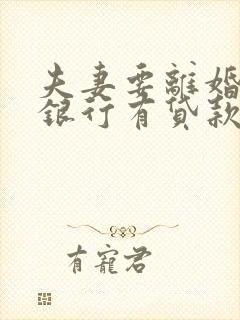 夫妻要離婚
銀行有貸款
有寵君